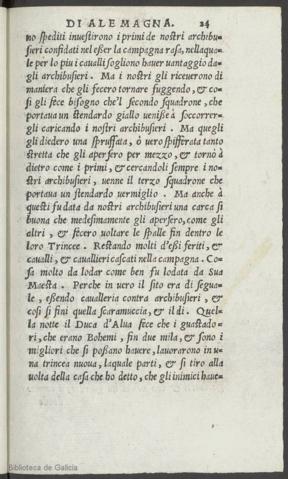 DI ALEMAGNA. 24
no spediti inuestirono i primi de nostri archibu=
sieri confidati nel eßer la campagna rasa, nellaqua=
le per lo piu i caualli sogliono hauer uantaggio da=
gli archibusieri. Ma i nostri gli riceuerono di
maniera che gli fecero tornare fuggendo, & co=
si gli fece bisogno che'l secondo squadrone, che
portaua un stendardo giallo ueniße à soccorrer=
gli caricando i nostri archibusieri. Ma quegli
gli diedero una spruffata, ò uero spifferata tanto
stretta che gli apersero per mezzo, & tornò à
dietro come i primi, & cercandoli sempre i no=
stri archibusieri, uenne il terzo squadrone che
portaua un stendardo uermiglio. Ma anche à
questi fu data da nostri archibusieri una carca si
buona che medesimamente gli apersero, come gli
altri, & fecero uoltare le spalle fin dentro le
loro Trincee. Restando molti d'eßi feriti, &
caualli, & cauallieri cascati nella campagna. Co=
sa molto da lodar come ben fu lodata da Sua
Maesta. Perche in uero il sito era di segua=
le, eßendo caualleria contra archibusieri, &
cosi si fini quella scaramuccia, & il di. Quel=
la notte il Duca d'Alua fece che i guastado=
ri, che erano Bohemi, fin due mila, & sono i
migliori che si poßano hauere, lauorarono in u=
na trincea nuoua, laquale parti, & si tiro alla
uolta della casa che ho detto, che gli inimici haue=
Biblioteca de Galicia